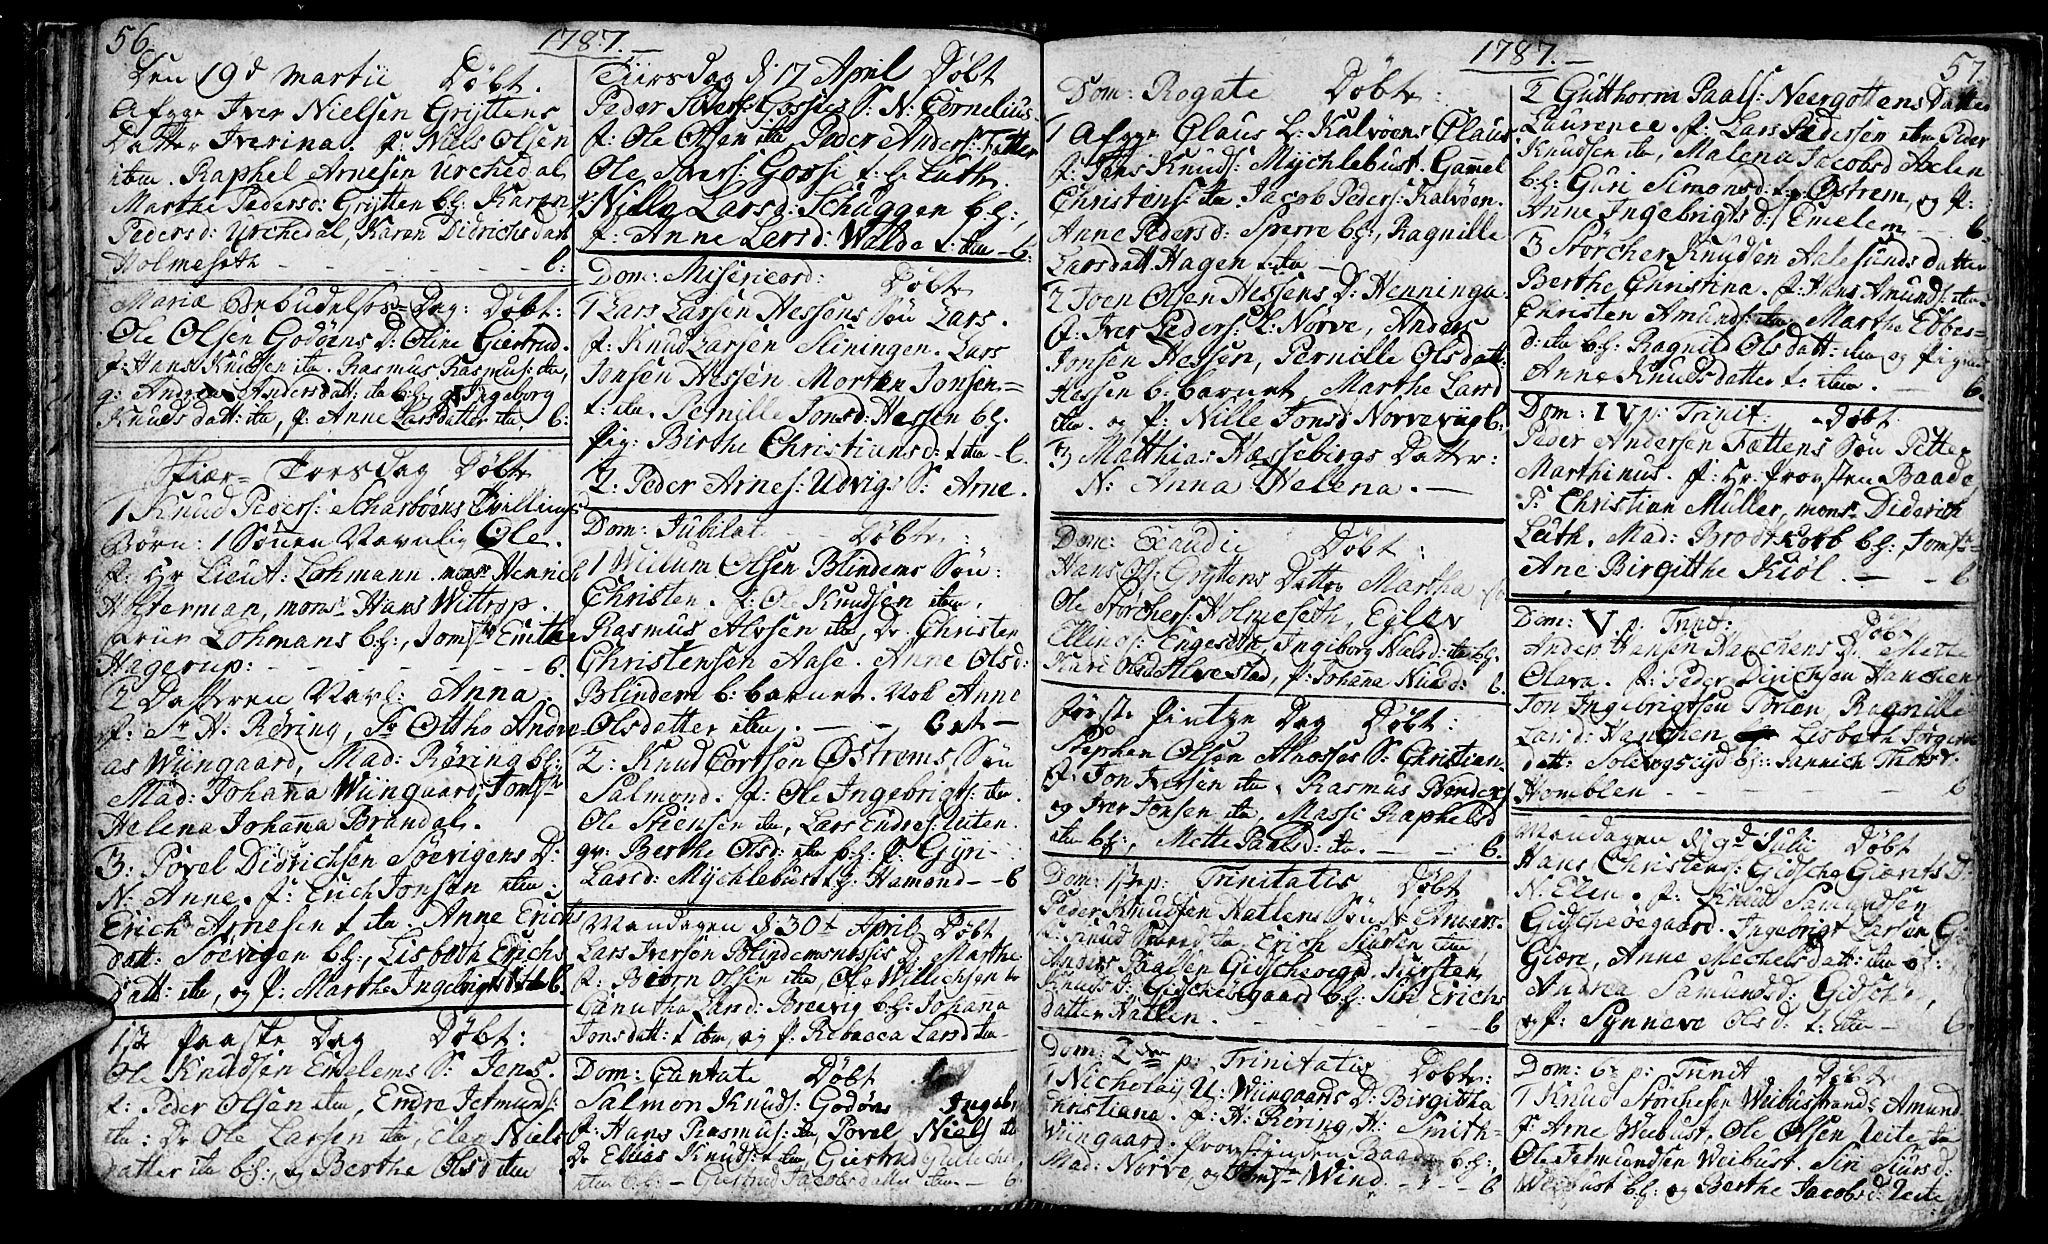 56.
1787.
Den 19d Martii Døbt.
Afgge Iver Nielsen Gryttens
Datter Iverina. f: Niels Olsen
item. Raphel Arnesen Urchedal
Marthe Pedersd: Grytten bl: Karen
Pedersd: Urchedal, Karen Didrichsdatt
Holmeseth - - - - - - b:
Mariæ Bebudelses Dag: Døbt:
Ole Olsen Godøens D: Oline Giertrud.
f: Hans Knudsen ite. Rasmus Rasmus: ite,
g: Andrea Andersdatt: ite bl: Ingeborg
Knuds datt: ite, f: Anne Larsdatter ite b:
Skiær-Torsdag Døbt
1 Knud Peders: Scharbøens Tvillinge
Børn: 1 Sønen Navnlig Ole.
f: Hr Lieut: Lohmann. mons Henrich
Alterman, mons Hans Wittrop.
Frue Lohmans bl:, Jomf Emthe
Hagerup: - - - - - b.
2 Datteren Navl: Anna.
f: Sr H. Røring, Sr Ottho Andre-
as Wiingaard, Mad: Røring bl:
Mad: Johanna Wiingaard, Jomf
Helena Johanna Brandal.
3: Povel Didrichsen Søevigens D:
N: Anne. f: Erich Jonsen item:
Erich Arnesen f ite, Anne Erichs
datt: Søevigen bl:, Lisbeth Erichs
datt: ite, og f: Marthe Ingebrigtsd ite b
1ste Paaske Dag Døbt:
Ole Knudsen Emelems S: Jens.
f: Peder Olsen item, Endre Jetmunds:
ite: Dr Ole Larsen ite, Elen Niels
datter ite bl: og Berthe Olsd item
Tiirsdag d 17 April Døbt
Peder Sivers: Gossies S: N: Cornelius
f: Ole Olsen ite Peder Anders: Tetter
Ole Ivers: Gossi f: f: Luth
Nilla Larsd: Schuggen bl:,
f: Anne Larsd: Walde f: item - b:
Dom: Misericord: Døbt
1 Lars Larsen Hessens Søn Lars.
f: Knud Larsen Sliningen. Lars
Jonsen Hessen. Morten Jonsen
f: ite. Pernille Jonsd: Hessen bl.
Pig: Birthe Christiansd: f item - b.
2: Peder Arnes: Udvigs S: Arne.
Dom: Jubilat - - Døbt:
1 Willum Olsen Blindems Søn:
Christen. f: Ole Knudsen item.
Rasmus Alvsen ite, Dr Christen
Christensen Aase. Anne Olsd:
Blindem b: barnet. Nok Anne
Olsdatter item. - - b et -
2: Knud Cortsen Østrems Søn
Salmond. f: Ole Ingebrigts: item.
Ole Steensen ite, Lars Endres: Leten.
gv: Berthe Olsd: ite bl: f: Gyn-
Larsd: Mychlebust g: Hamond - - b
Mandagen d 30t April Døbt
Lars Iversen Blindemsnessis D: Marthe
f: Biorn Olsen ite, Ole Willichsen ite
Canutha Larsd: Breevig bl: Johana
Jonsdatt: f item, og f: Rebecca Larsd ite
Dom: Cantate Døbt
Salmon Knuds: Godøns Ingebr
f: Hans Rasmus: ite, Povel Niels ite
Dr Elias Knuds: f ite Giertrud
item bl: - Giertrud Jacobsdatter item - b
1787.
57.
Dom: Rogate Døbt:
1 Afgge Claus L: Kalvøens Claus
f: Jens Knuds: Mychlebust. Gamel
Christens: ite Jacob Peders: Kalvøen.
Anne Pedersd: Sperre bl:, Ragnille
Larsdatt Hagen f: ite -
2 Joen Olsen Hessens D: Henninga.
f: Iver Peders: L: Nørve, Anders
Jonsen Hessen, Pernille Olsdatt:
Hessen b: barnet, Marthe Larsd
item. og f: Nille Jonsd Norvevüg b:
3 Matthias Hæssebirgs Datter:
N: Anna Helena. -
Dom: Exaudi Døbt:
Hans Ols: Gryttens Datter Martha
Ole Størchers: Holmeseth, Egleu
Ellends: Engeseth, Ingiborg Nielsd: ite bl:
Kari Olsd Flovestad, f: Johana Nielsd: b.
Første Pintze Dag Døbt:
Stephen Olsen Alnosses S: Christian.
f: Jon Nessen ite, Rasmus Bender
og Iver Jonsen ite, Massi Raphelsd
item bl:, Mette Paalsd: ite. - - b.
Dom: 1ste p: Trinitatis Døbt
Peder Knudsen Hatlens Søn N: Amars.
f: Knud ite, Erich Siursen item
Anders Paalsen Gidschevegd, Kirsten
Knuds d: Gidschesgaard bl: Siri Erichs
datter Hatlen. - - - - - - b
Dom: 2den p: Trinitatis Døbt:
1 Nicholaij U: Wiingaards D: Birgittha
Christiana. f: H: Røring, H: Smith-
Wiingaard. Provstinden Baade bl:,
Mad: Norve og Jomf Wind. - - - b
2 Gutthorm Paals: Neergottens Datter
Laurence. f: Lars Pedersen item Peder
Knudsen ite, Malena Jacobsd Axlen
bl: Guri Simonsd: f: Østrem, og f:
Anne Ingebrigts d: Emelem - - b.
3 Størcher Knudsen Aalesunds datter
Berthe Christina. f: Hans Amunds: item
Christen Amunds: item, Marthe Ebbes-
d: ite bl: Ragnild Olsdatt: item og Pigen
Anne Knudsdatter f: item. b.
Dom: IV p: Trinit. Døbt
Peder Andersen Fættens Søn Petter
Marthinus. f: Hr Provsten Baade
P: Christian Müller, mons Diderich
Leuth. Mad: Brodtkorb bl: Jomf
Ane Birgitthe Kiøl. - - b
Dom: V p: Trinit: Døbt
Anders Hansen Hanchens D: Mette
Olava. f: Peder Dirichsen Hanchens
Jon Ingebrigtsen Torien, Ragnille
Larsd: Hanchen Lisbeth Torgers
datt: Solevogseyd bl: Jannich Thors:
Homblen - - - - - - b
Mandagen d 9d Julii Døbt
Hans Christens: Gidsche Giærts D:
N: Elen. f: Knud Samundsen
Gidschevegaard. Ingebrigt Larsen Gi
Giære, Anne Mechelsdatt: item bl:
Andrea Samundsd: Gidsche,
og f: Synneve Olsd: f: item - b.
Dom: 6te p: Trinit Døbt
1 Knud Størchesen Weibustrands Amund
f: Arne Weibust, Ole Olsen Leite ite
Ole Jetmundsen Weibust. Siri Siursd:
Weibust bl: og Berthe Jacobsd: Leite